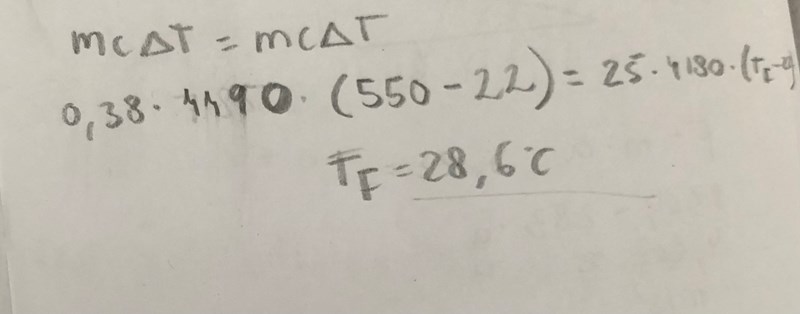 mcΔT = mcΔT
0,38 · 4490 · (550 - 22) = 25 · 4180 · (T_F -
T_F = 28,6°C